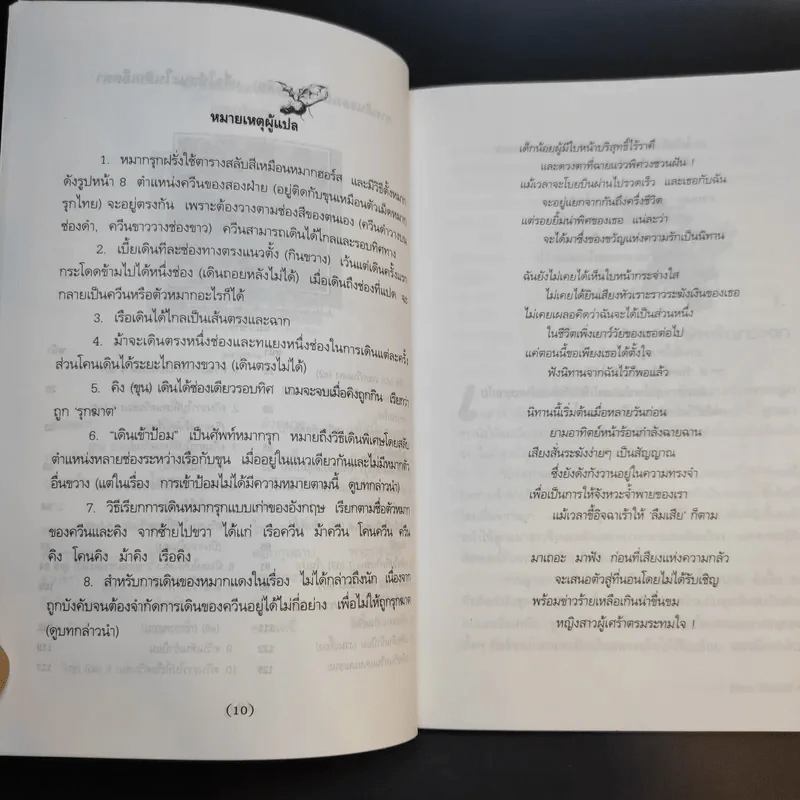 หมายเหตุผู้แปล
1. หมากรุกฝรั่งใช้ตารางสลับสีเหมือนหมากฮอร์ส และมีวิธีตั้งหมาก
ดังรูปหน้า 8 ตำแหน่งควีนของสองฝ่าย (อยู่ติดกับขุนเหมือนตัวเม็ดหมาก
รุกไทย) จะอยู่ตรงกัน เพราะต้องวางตามช่องสีของตนเอง (ควีนดำวางบน
ช่องดำ, ควีนขาววางช่องขาว) ควีนสามารถเดินได้ไกลและรอบทิศทาง
2. เบี้ยเดินทีละช่องทางตรงแนวตั้ง (กินขวาง) เว้นแต่เดินครั้งแรก
กระโดดข้ามไปได้หนึ่งช่อง (เดินถอยหลังไม่ได้) เมื่อเดินถึงช่องที่แปด จะ
กลายเป็นควีนหรือตัวหมากอะไรก็ได้
3. เรือเดินได้ไกลเป็นเส้นตรงและฉาก
4. ม้าจะเดินตรงหนึ่งช่องและทแยงหนึ่งช่องในการเดินแต่ละครั้ง
ส่วนโคนเดินได้ระยะไกลทางขวาง (เดินตรงไม่ได้)
5. คิง (ขุน) เดินได้ช่องเดียวรอบทิศ เกมจะจบเมื่อคิงถูกกิน เรียกว่า
ถูก 'รุกฆาต'
6. "เดินเข้าป้อม" เป็นศัพท์หมากรุก หมายถึงวิธีเดินพิเศษโดยสลับ
ตำแหน่งหลายช่องระหว่างเรือกับขุน เมื่ออยู่ในแนวเดียวกันและไม่มีหมากตัว
อื่นขวาง (แต่ในเรื่อง การเข้าป้อมไม่ได้มีความหมายตามนี้ ดูบทกล่าวนำ)
7. วิธีเรียกการเดินหมากรุกแบบเก่าของอังกฤษ เรียกตามชื่อตัวหมาก
ของควีนและคิง จากซ้ายไปขวา ได้แก่ เรือควีน ม้าควีน โคนควีน ควีน
คิง โคนคิง ม้าคิง เรือคิง
8. สำหรับการเดินของหมากแดงในเรื่อง ไม่ได้กล่าวถึงนัก เนื่องจาก
ถูกบังคับจนต้องจำกัดการเดินของควีนอยู่ได้ไม่กี่อย่าง เพื่อไม่ให้ถูกรุกฆาต
(ดูบทกล่าวนำ)
(10)
เด็กน้อยผู้มีใบหน้าบริสุทธิ์ไร้ราคี
และดวงตาที่ฉายแววพิศวงชวนฝัน !
แม้เวลาจะโบยบินผ่านไปรวดเร็ว และเธอกับฉัน
จะอยู่แยกจากกันถึงครึ่งชีวิต
แต่รอยยิ้มน่าพิศของเธอ แน่ละว่า
จะได้มาซึ่งของขวัญแห่งความรักเป็นนิทาน
ฉันยังไม่เคยได้เห็นใบหน้ากระจ่างใส
ไม่เคยได้ยินเสียงหัวเราะราวระฆังเงินของเธอ
ไม่เคยเผลอคิดว่าฉันจะได้เป็นส่วนหนึ่ง
ในชีวิตเพิ่งเยาว์วัยของเธอต่อไป
แค่ตอนนี้ขอเพียงเธอได้ตั้งใจ
ฟังนิทานจากฉันไว้ก็พอแล้ว
นิทานนี้เริ่มต้นเมื่อหลายวันก่อน
ยามอาทิตย์หน้าร้อนกำลังฉายฉาน
เสียงสั่นระฆังง่ายๆ เป็นสัญญาณ
ซึ่งยังดังกังวานอยู่ในความทรงจำ
เพื่อเป็นการให้จังหวะจ้ำพายของเรา
แม้เวลาขี้อิจฉาเร้าให้ 'ลืมเสีย' ก็ตาม
มาเถอะ มาฟัง ก่อนที่เสียงแห่งความกลัว
จะเสนอตัวสู่ที่นอนโดยไม่ได้รับเชิญ
พร้อมข่าวร้ายเหลือเกินน่าขื่นขม
หญิงสาวผู้เศร้าตรมระทมใจ !